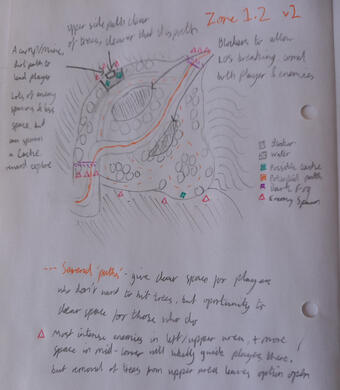 Zone 1.2 v1
upper side path clear
of trees, clearer that this path
A curvy/
but path to
lead player
Lots of enemy
spawns & less
space, but
can spawn
a Cache
reward explore
Blockers to allow
LOS breaking, and
both Player & Enemies
Blocker
water
Possible cache
Potential paths
Dark Fog
Enemy Spawn
--- Several 'paths' - give clear spaces for players
who don't want to hit trees, but opportunity to
clear space for those who do
△ Most intense enemies in left/upper area, + more
space in mid-lower will likely guide players there,
but removal of trees from upper area leaves option open